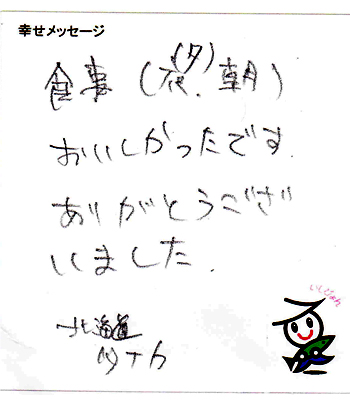 幸せメッセージ
(夕)
食事(夜.朝)
おいしかったです.
ありがとうござ
いました.
北海道